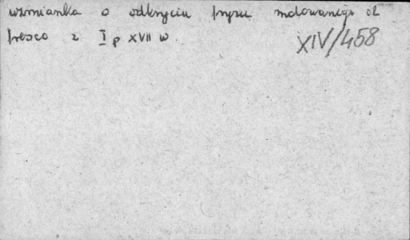 wzmianka o odkryciu fryzu malowanego al
fresco z I p XVII w.
XIV/458